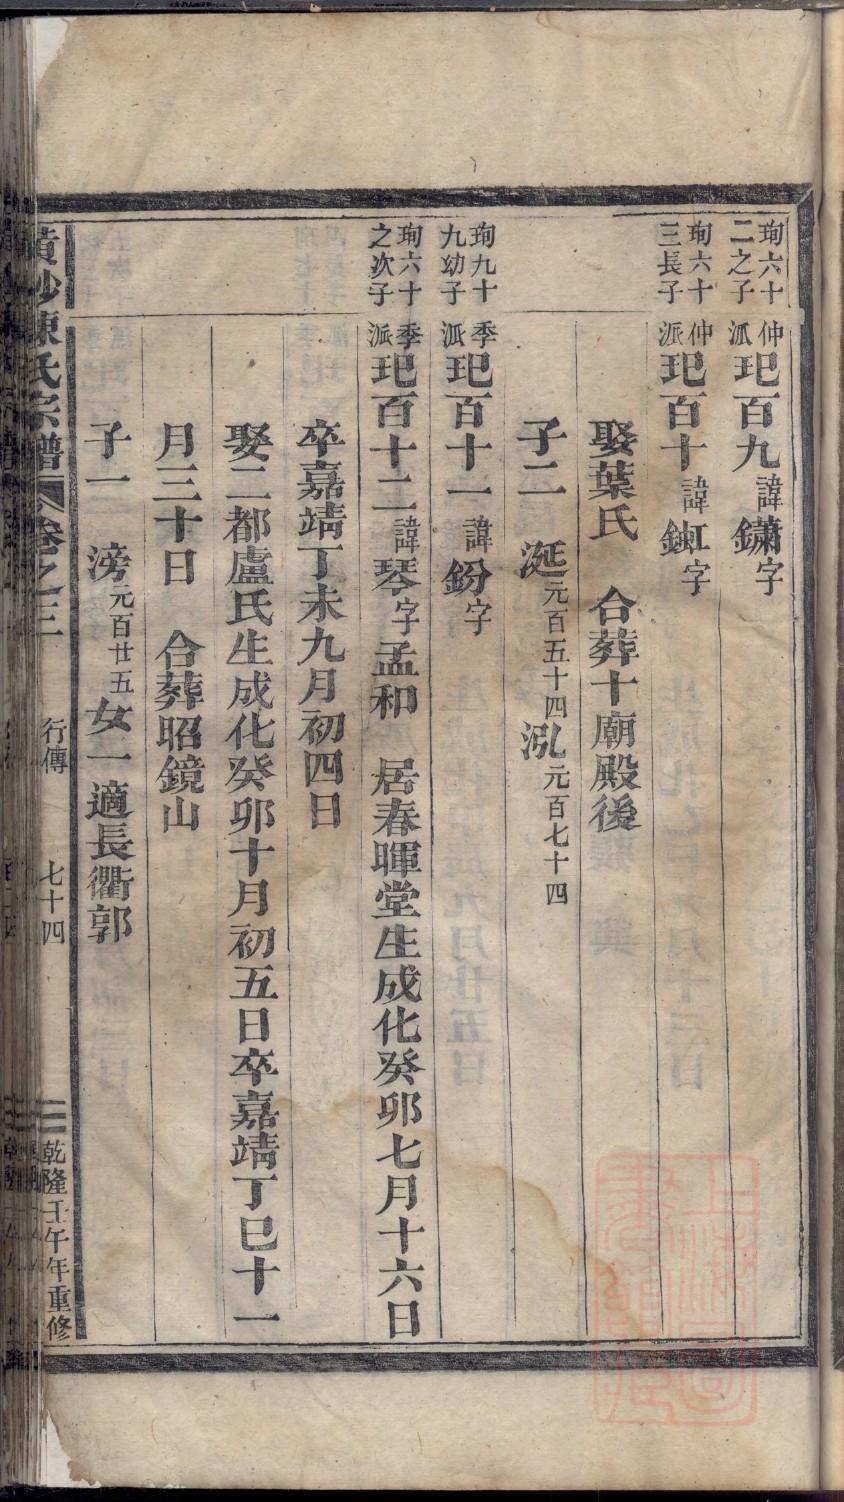 珣六十二之子 仲派 玘百九 諱鏽字
珣六十三長子 仲派 玘百十 諱鉷字
娶葉氏 合葬十廟殿後
子二 涎元百五十四 泓元百七十四
珣九十九幼子 季派 玘百十一 諱鈖字
珣六十之次子 季派 玘百十二 諱琴字孟和 居春暉堂生成化癸卯七月十六日
卒嘉靖丁未九月初四日
娶二都盧氏生成化癸卯十月初五日卒嘉靖丁巳十一
月三十日 合葬昭鏡山
子一 滂元百廿五 女一適長衢郭
陳氏宗譜 卷之三 行傳 七十四 乾隆壬午年重修